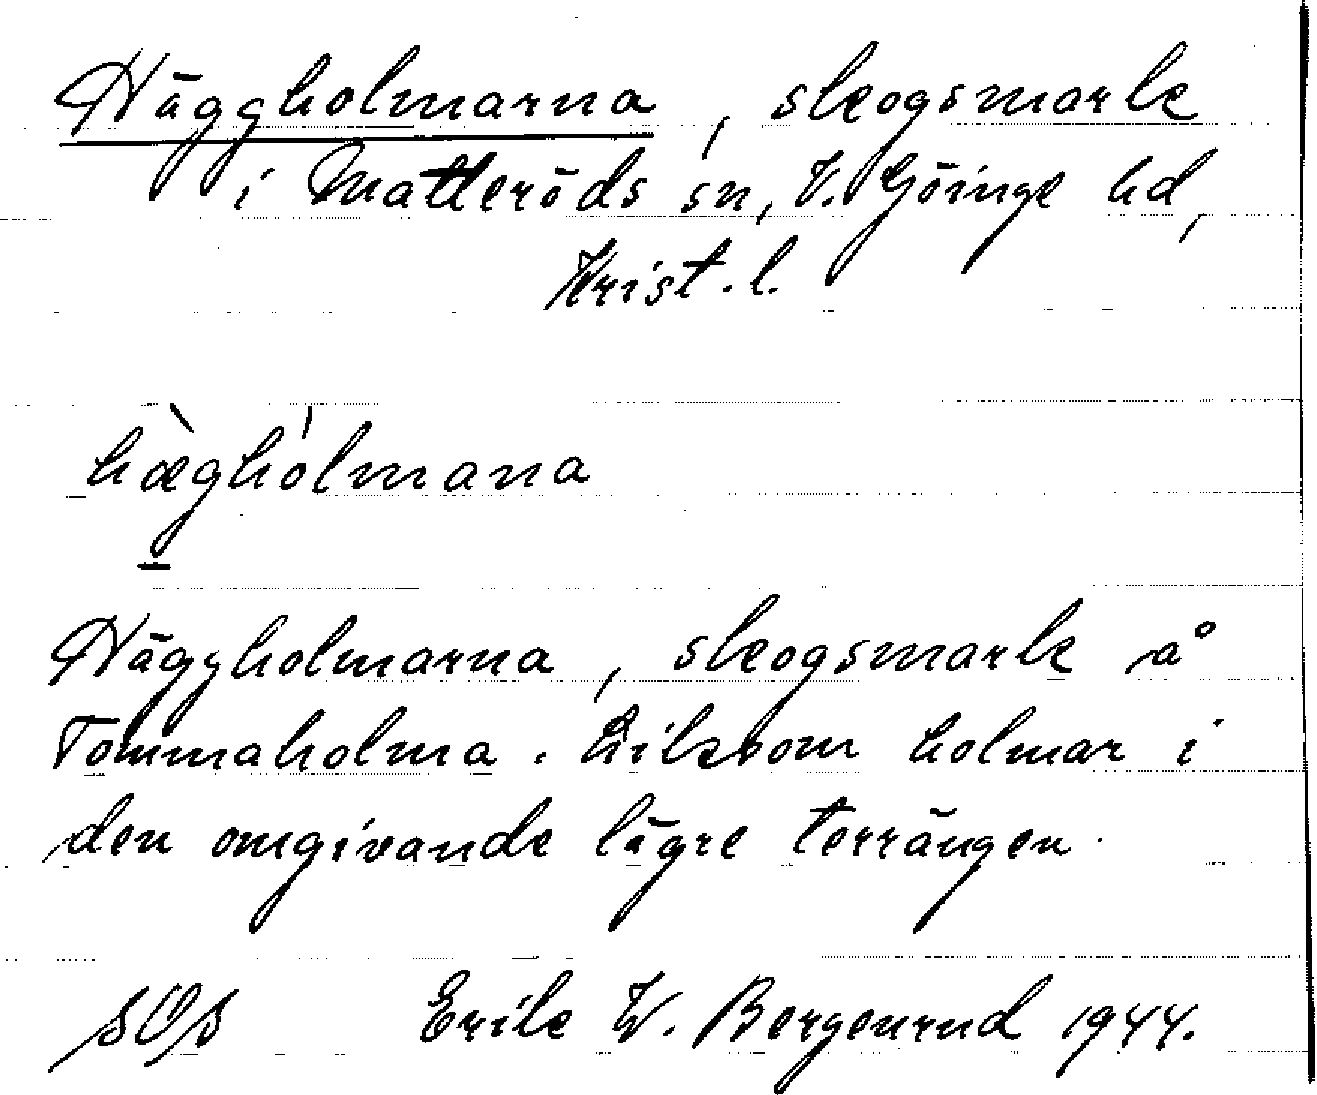 Häggholmarna, skogsmark
i Matteröds sn, V. Göinge hd,
Krist. l.
hæ̀ghólmana
Häggholmarna, skogsmark å
Tommaholma. Liksom holmar i
den omgivande lägre terrängen.
SOS Erik W. Bergenrud 1944.